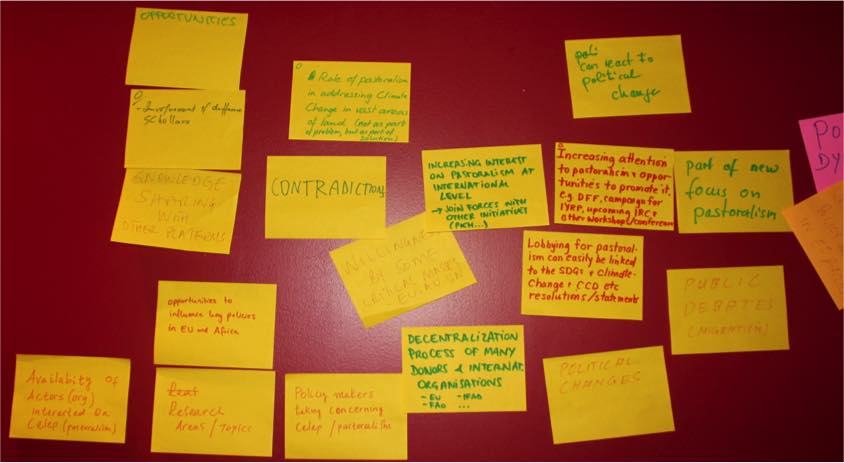 OPPORTUNITIES
O
- Involvement of
Scholars
KNOWLEDGE
SHARING
WITH
OTHER PLATFORMS
O
Role of pastoralism
in addressing Climate
Change in vast areas
of land (not as part
of problem, but as part of
solution)
CONTRADICTION
INCREASING INTEREST
ON PASTORALISM AT
INTERNATIONAL
LEVEL
→ JOIN FORCES WITH
OTHER INITIATIVES
BY SOME
can react to
political
change
O
Increasing attention
to pastoralism & oppor-
tunities to promote it.
eg DFF, campaign for
IYRP, upcoming IRC &
other workshops/conference
part of new
focus on
pastoralism
PO
DY
Lobbying for pastoral-
ism can easily be linked
to the SDGs & Climate-
Change & CCD etc
resolutions/statements
PUBLIC
DEBATES
(MIGRATION)
opportunities to
influence key policies
in EU and Africa
DECENTRALIZATION
PROCESS OF MANY
DONORS & INTERNAT.
ORGANISATIONS
- EU - IFAD
- FAO ...
POLITICAL
CHANGES
Availabity of
Actors (org)
interested on
Celep (pastoralism)
Research
Areas / Topics
Policy makers
taking concerning
Celep / pastoralism